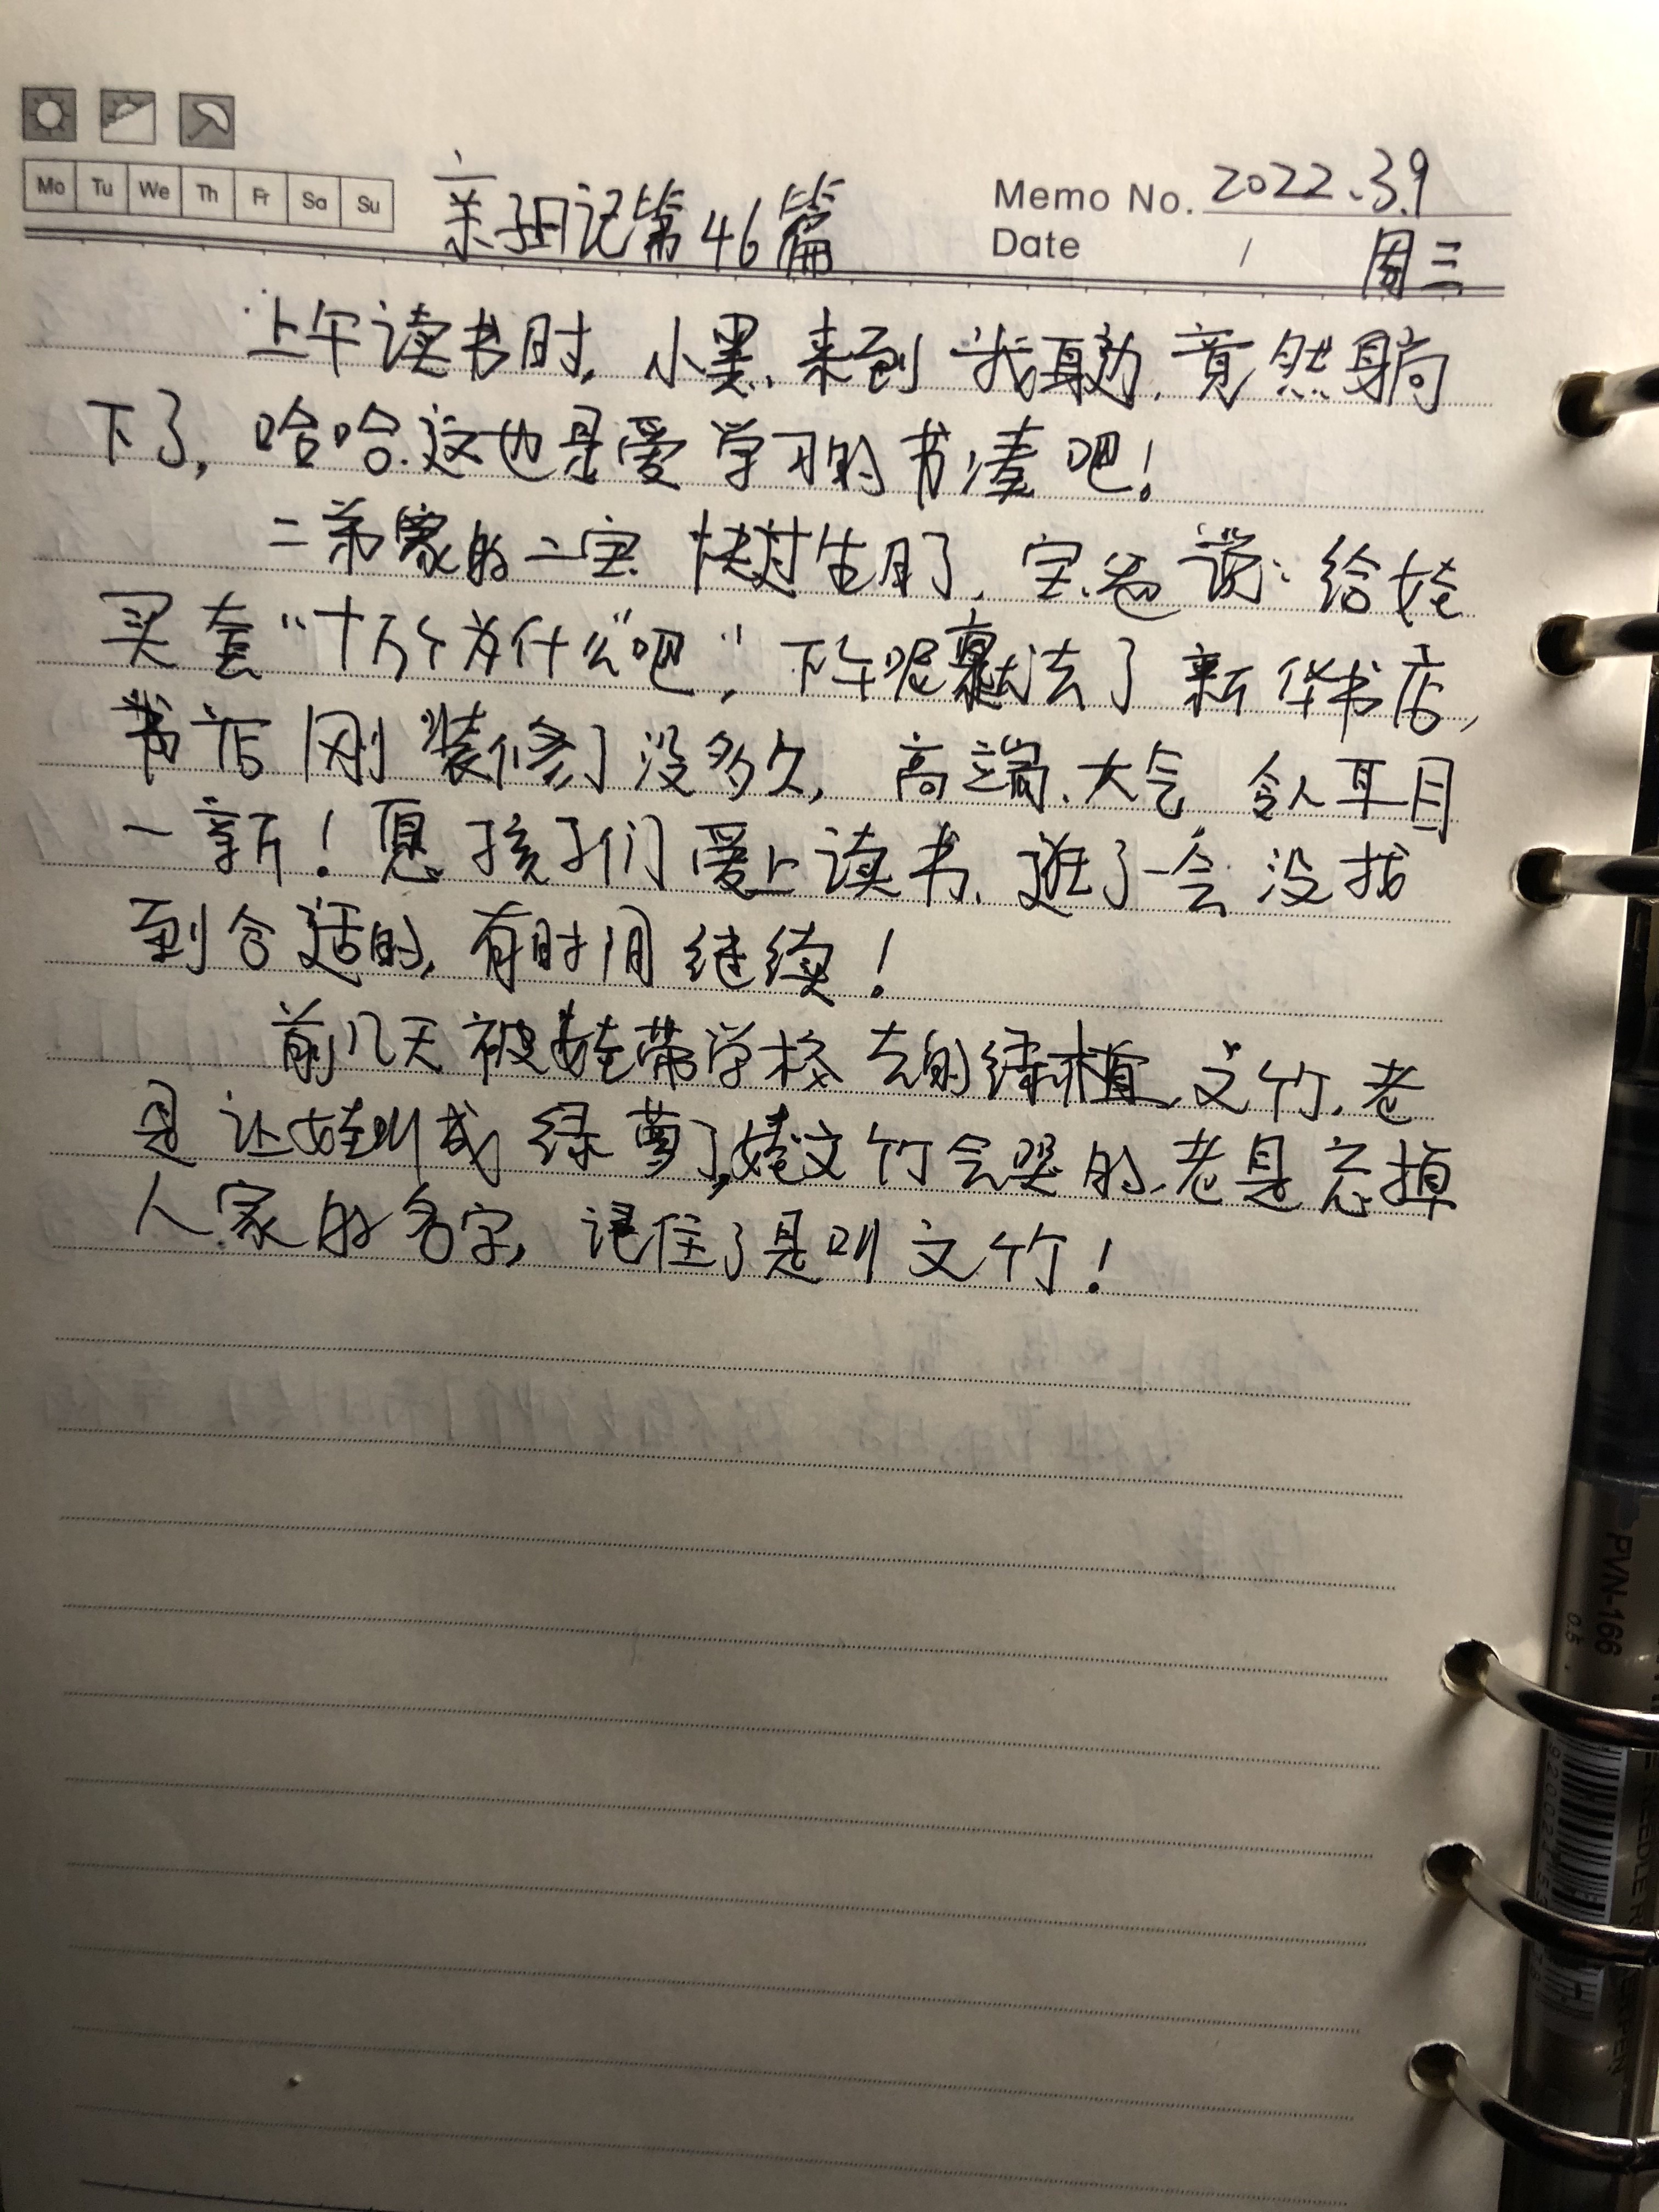 Mo Tu We Th Fr Sa Su
亲子日记第46篇
Memo No. 2022.3.9
Date / 周三
上午读书时,小黑来到我身边,竟然躺
下了,哈哈.这也是爱学习的书凑吧!
二弟家的二宝快过生日了,宝爸说:给娃
买套“十万个为什么”吧”,下午呢就去了新华书店,
书店刚装修了没多久,高端、大气 令人耳目
一新!愿孩子们爱上读书,逛了一会没找
到合适的,有时间继续!
前几天被娃带学校去的绿植,文竹,老
是让娃叫成绿萝了,文竹会哭的,老是忘掉
人家的名字,记住了是叫文竹!
PVN-166
0.5